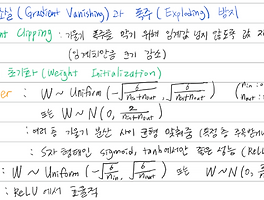 소실 (Gradient Vanishing)과 폭주 (Exploding) 방지
Clipping : 기울기 폭주를 막기 위해 임계값 넘지 않도록 값
(임계치만큼 크기 감소)
초기화 (Weight Initialization)
W ~ Uniform (-√6/(nin+nout), √6/(nin+nout))
또는 W ~ N(0, 2/(nin+nout))
: 여러 층 기울기 분산 사이 균형 맞춰줌
: S자 형태인 sigmoid, tanh에서 좋은 성능
: W ~ Uniform (-√6/nin, √6/nin) 또는 W~N(0,
: ReLU 에서 효율적